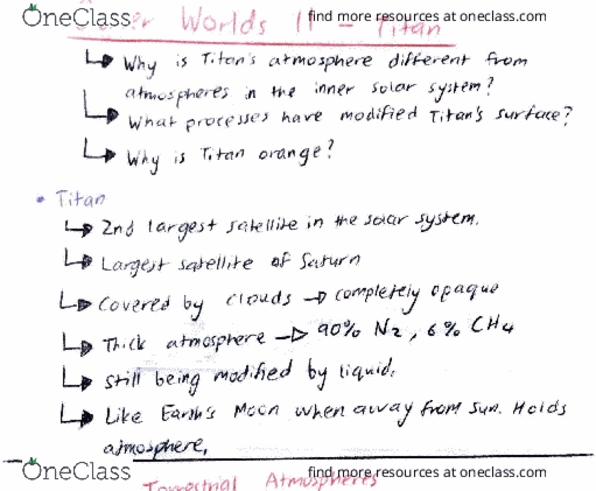 OneClass find more resources at oneclass.com
Outer Worlds II - Titan
Why is Titan's atmosphere different from
atmospheres in the inner solar system?
What processes have modified Titan's surface?
Why is Titan orange?
• Titan
2nd largest satellite in the solar system.
Largest satellite of Saturn
Covered by clouds → completely opaque
Thick atmosphere → 90% N2, 6% CH4
Still being modified by liquid.
Like Earth's Moon when away from sun. Holds
atmosphere.
OneClass find more resources at oneclass.com
Terrestrial Atmospheres